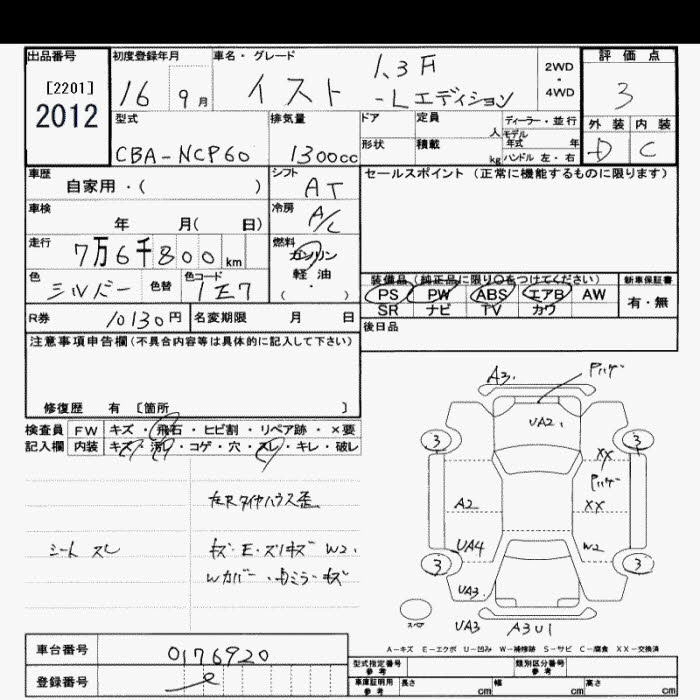 出品番号 初度登録年月 車名・グレード 評価点
[2201]
2012
16 9月
イスト 1.3F
-Lエディション
2WD
・
4WD
3
型式 排気量 ドア 定員 人 ディーラー・並行 外装 内装
モデル年式 年
CBA-NCP60 1300cc 形状 積載 kg ハンドル 左・右 D C
車歴 シフト セールスポイント(正常に機能するものに限ります)
自家用・( ) AT
車検 冷房
年 月( 日) A/C
走行 燃料
7万6千800km ガソリン
軽油
( ・ )
色 色替 色コード
シルバー 1E7
装備品(純正品に限り○をつけてください) 新車保証書
PS PW ABS エアB AW 有・無
SR ナビ TV カワ
R券 10130円 名変期限 月 日 後日品
注意事項申告欄(不具合内容等は具体的に記入して下さい)
修復歴 有 [箇所 ]
検査員 FW キズ・飛石・ヒビ割・リペア跡・×要
記入欄 内装 キズ・汚レ・コゲ・穴・スレ・キレ・破レ
左右Rタイヤハウス歪
シート スレ キズ・E・スリキズ W2.
Wカバー・ミラーキズ
A3.
UA2.
3 3
XX
A2 XX
UA4 W2
3 3
UA3.
UA3 A3U1
スペア
A-キズ E-エクボ U-凹み W-補修跡 S-サビ C-腐食 XX-交換済
車台番号 0176920
登録番号
型式指定番号 参考 類別区分番号 参考
車庫証明用 参考 長さ cm 幅 cm 高さ cm